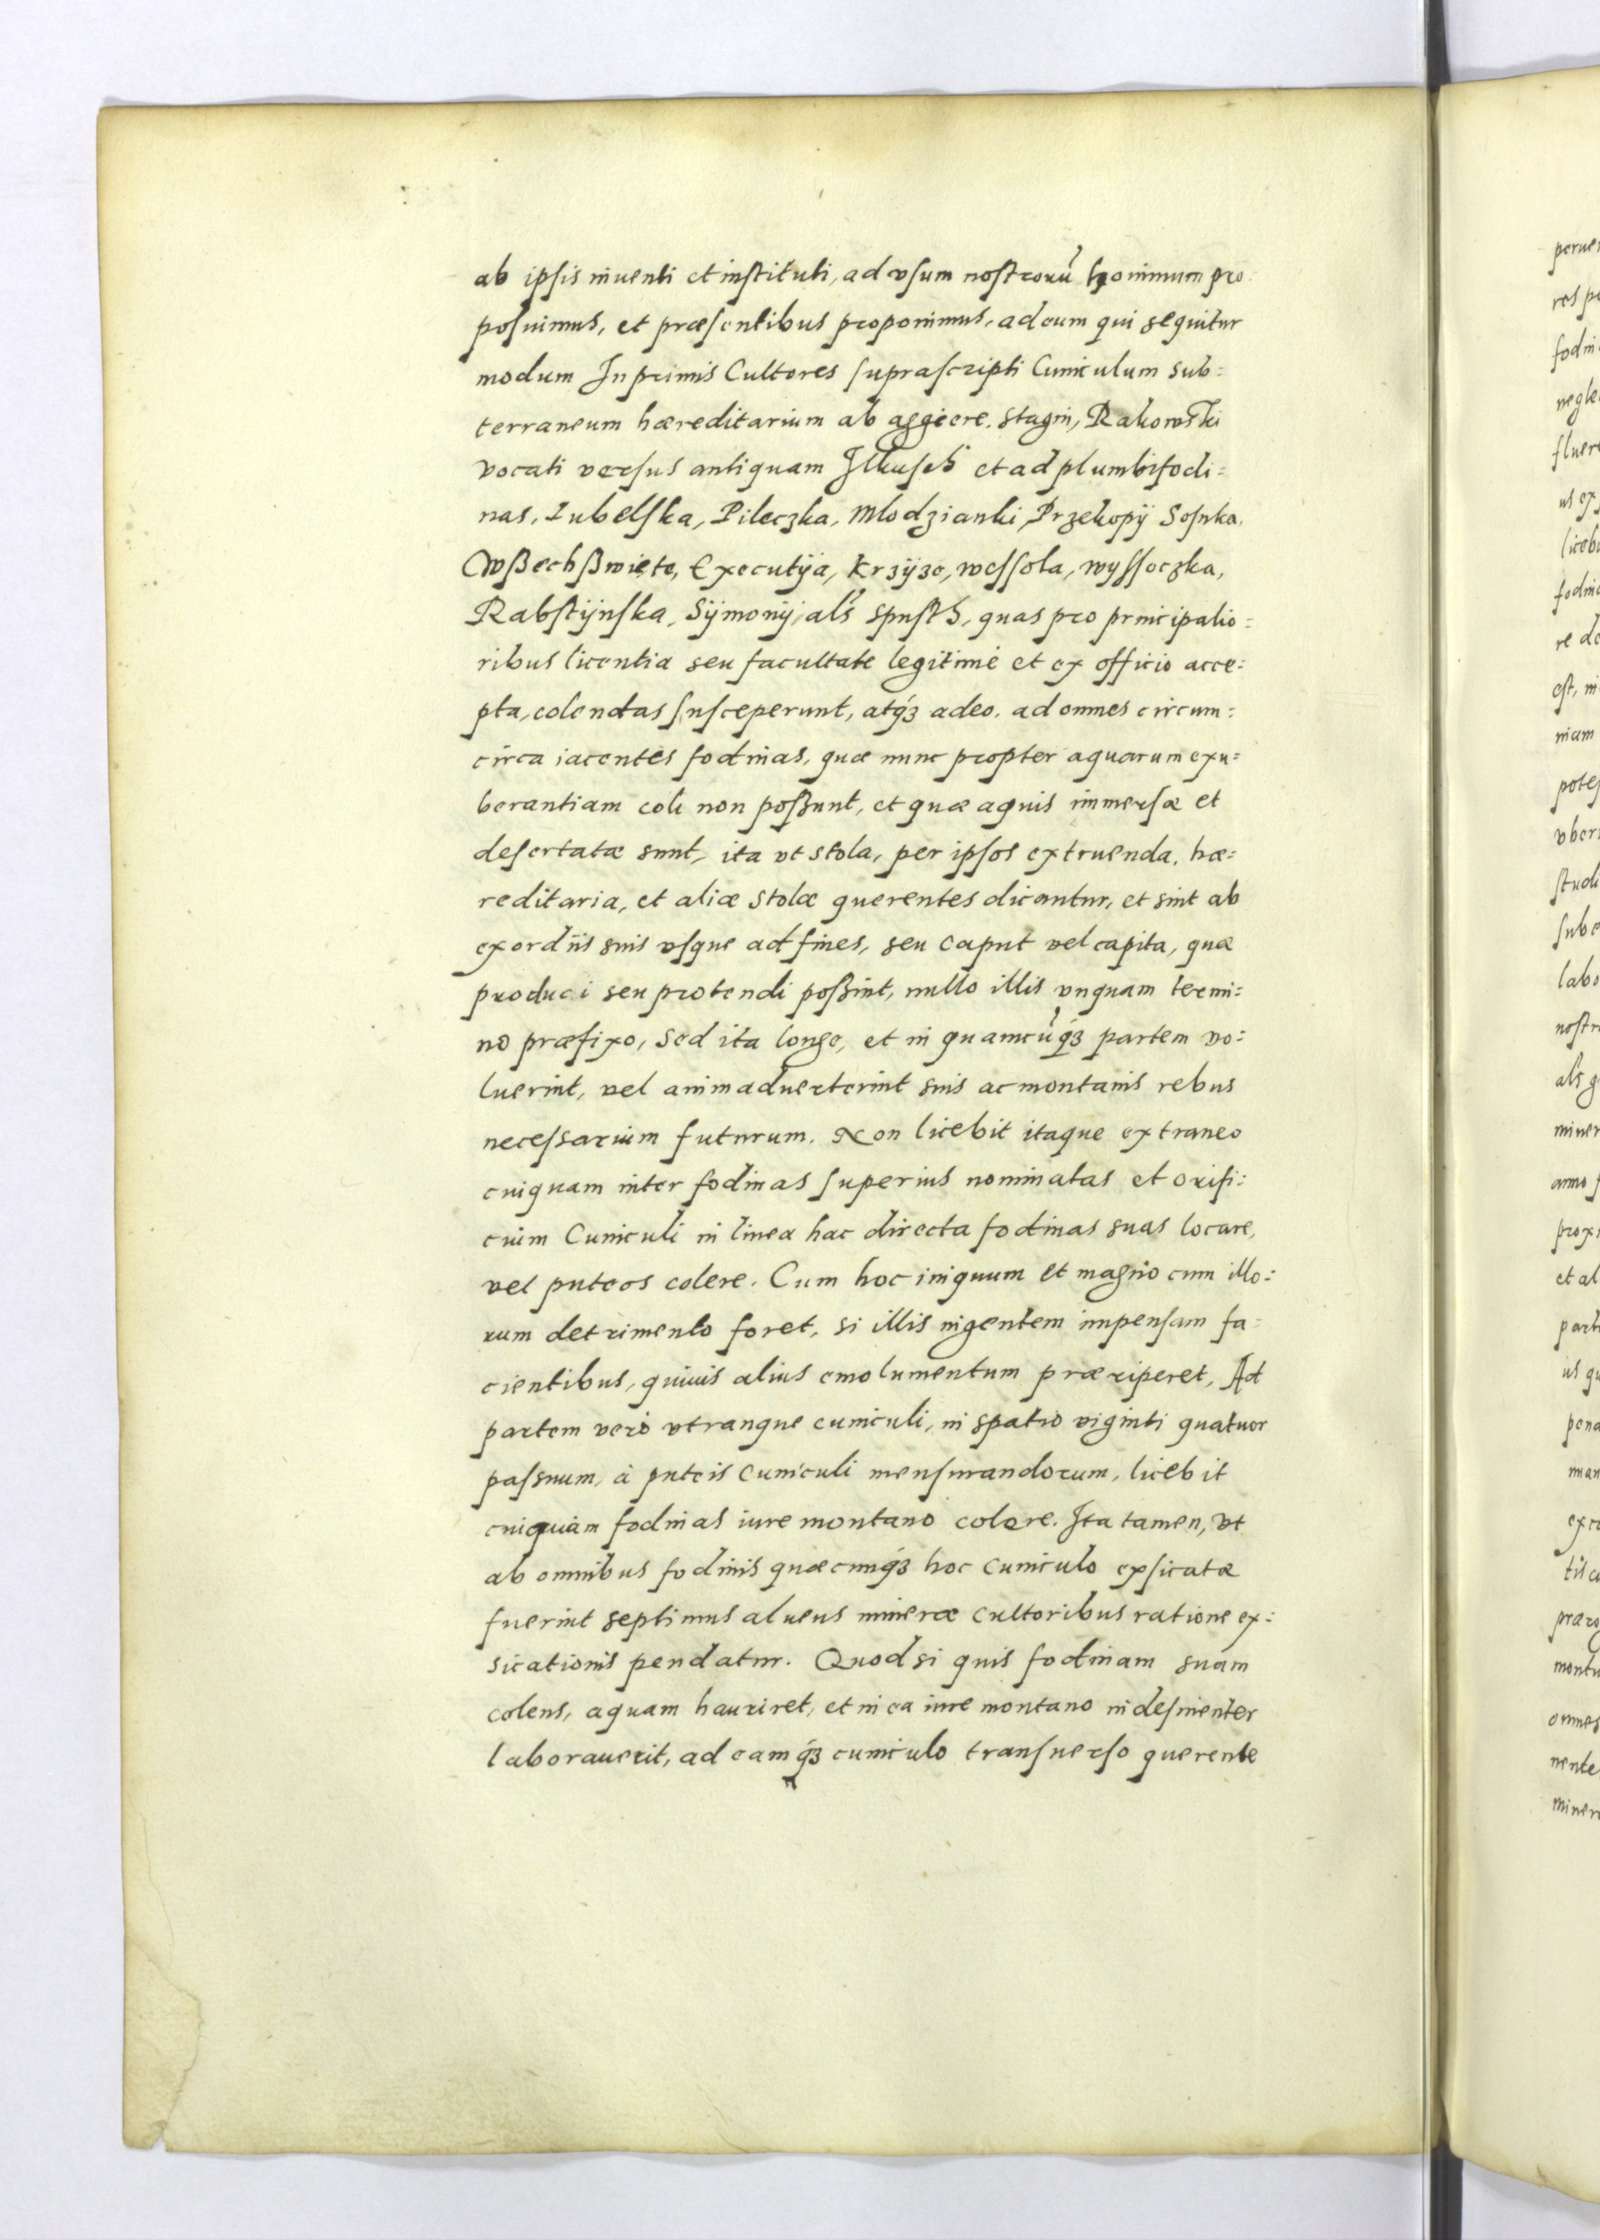 ab ipsis inuenti et instituti, ad vsum nostrorũ hominum pro
posuimus, et præsentibus proponimus, ad eum qui sequitur
modum In primis Cultores suprascripti Cuniculum sub:
terraneum hæreditarium ab aggere, stagni, Rakowski
vocati versus antiquam Ilkusch et ad plumbifodi:
nas, Lubelska, Pileczka, Mlodzianki, Przekopÿ Sosnka,
Wßechßwięte, Executÿa, Krzÿże, wessola, wyssoczka,
Rabstÿnska, Sÿmonÿ, als Spust3, quas pro principalio:
ribus licentia seu facultate legitimè et ex officio acce:
pta, colendas susceperunt, atq3 adeo, ad omnes circum:
circa iacentes fodinas, quæ nunc propter aquarum exu:
berantiam coli non poßunt, et quæ aquis immersæ et
desertatæ sunt, ita vt stola, per ipsos extruenda, hæ:
reditaria, et aliæ stolæ querentes dicantur, et sint ab
exordiis suis vsque ad fines, seu caput vel capita, quæ
produci seu protendi poßint, nullo illis vnquam termi:
no præfixo, Sed ita longe, et in quamcũq3 partem vo:
luerint, vel animaduerterint suis ac montanis rebus
necessarium futurum. Non licebit itaque extraneo
cuiquam inter fodinas superius nominatas et orifi:
cium Cuniculi in linea hac directa fodinas suas locare,
vel puteos colere. Cum hoc iniquum et magno cum illo:
rum detrimento foret, si illis ingentem impensam fa
cientibus, quiuis alius emolumentum præriperet, Ad
partem verò vtranque cuniculi, in spatio viginti quatuor
passuum, à puteis cuniculi mensurandorum, licebit
cuiquam fodinas iure montano colere. Ita tamen, vt
ab omnibus fodinis quæcunq3 hoc cuniculo exsicatæ
fuerint septimus alueus mineræ cultoribus ratione ex:
sicationis pendatur. Quod si quis fodinam suam
colens, aquam hauriret, et in ea iure montano indesinenter
laborauerit, ad eamq3 cuniculo transuerso querente